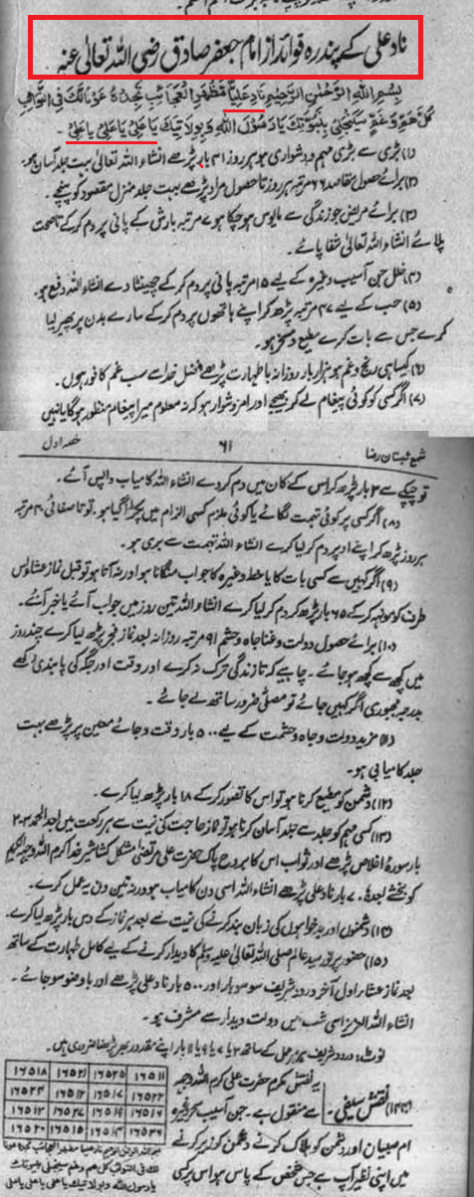 ناد علی کے پندرہ فوائد از امام جعفر صادق رضی اللہ تعالیٰ عنہ
بِسْمِ اللهِ الرَّحْمٰنِ الرَّحِيْمِ نَادِ عَلِيًّا مَظْهَرَ الْعَجَائِبِ تَجِدْهُ عَوْنًا لَّكَ فِي النَّوَائِبِ
كُلُّ هَمٍّ وَّغَمٍّ سَيَنْجَلِيْ بِنُبُوَّتِكَ يَا رَسُوْلَ اللهِ وَبِوِلَايَتِكَ يَا عَلِيُّ يَا عَلِيُّ يَا عَلِيُّ
(۱) بڑی سے بڑی مہم و دشواری ہو ہر روز ۴۱ بار پڑھے انشاء اللہ تعالیٰ بہت جلد آسان ہو۔
(۲) برائے حصول مقاصد ۶۶ مرتبہ ہر روز تا حصول مراد پڑھے بہت جلد منزل مقصود کو پہنچے۔
(۳) برائے مریض جو زندگی سے مایوس ہو چکا ہو ۷ مرتبہ بارش کے پانی پر دم کر کے تا صحت
پلائے انشاء اللہ تعالیٰ شفا پائے۔
(۴) خلل جن آسیب وغیرہ کے لیے ۱۵ مرتبہ پانی پر دم کر کے چھینٹا دے انشاء اللہ دفع ہو۔
(۵) حب کے لیے ۴۷ مرتبہ پڑھ کر اپنے ہاتھوں پر دم کر کے سارے بدن پر پھیر لیا
کرے جس سے بات کرے مطیع و مسخر ہو۔
(۶) کیسا ہی رنج و غم ہو ہزار بار روزانہ با طہارت پڑھے فضل خدا سے سب غم کافور ہوں۔
(۷) اگر کسی کو کوئی پیغام لے کر بھیجے اور امر دشوار ہو کہ نہ معلوم میرا پیغام منظور ہو گا یا نہیں
شمع شبستان رضا ۶۱ حصہ اول
تو چپکے سے ۲ بار پڑھ کر اس کے کان میں دم کر دے انشاء اللہ کامیاب واپس آئے۔
(۸) اگر کسی پر کوئی تہمت لگائے یا کوئی ملزم کسی الزام میں پکڑا گیا ہو۔ تو تا صفائی ۴۰ مرتبہ
ہر روز پڑھ کر اپنے اوپر دم کر لیا کرے انشاء اللہ تہمت سے بری ہو۔
(۹) اگر کہیں سے کسی بات کا یا خط وغیرہ کا جواب منگانا ہو اور نہ آتا ہو تو قبل نماز عشاء اس
طرف کو منہ کر کے ۶۵ بار پڑھ کر دم کر لیا کرے انشاء اللہ تین روز میں جواب آئے یا خبر آئے۔
(۱۰) برائے حصول دولت و غنا جاہ و حشم ۹۱ مرتبہ روزانہ بعد نماز فجر پڑھ لیا کرے چند روز
میں کچھ سے کچھ ہو جائے۔ چاہیے کہ تا زندگی ترک نہ کرے اور وقت اور جگہ کی پابندی رکھے
بدرجہ مجبوری اگر کہیں جائے تو مصلیٰ ضرور ساتھ لے جائے۔
(۱۱) مزید دولت و جاہ و حشمت کے لیے ۵۰۰ بار وقت و جائے معین پر پڑھے بہت
جلد کامیابی ہو۔
(۱۲) دشمن کو مطیع کرنا ہو تو اس کا تصور کر کے ۱۸ بار پڑھ لیا کرے۔
(۱۳) کسی مہم کو جلد سے جلد آسان کرنا ہو تو نماز حاجت کی نیت سے ہر رکعت میں بعد الحمد ۲۰۲
بار سورۂ اخلاص پڑھے اور ثواب اس کا بروح پاک حضرت علی مرتضیٰ مشکل کشا شیر خدا کرم اللہ وجہہ الکریم
کو بخشے بعدہٗ ۷۰ بار ناد علی پڑھے انشاء اللہ اسی دن کامیاب ہو ورنہ تین دن یہ عمل کرے۔
(۱۴) دشمنوں اور بدخواہوں کی زبان بند کرنے کی نیت سے بعد ہر نماز کے دس بار پڑھ لیا کرے۔
(۱۵) حضور پرنور سید عالم صلی اللہ تعالیٰ علیہ وسلم کا دیدار کرنے کے لیے کامل طہارت کے ساتھ
بعد نماز عشاء اول آخر درود شریف سو سو بار اور ۵۰۰ بار ناد علی پڑھے اور با وضو سو جائے۔
انشاء اللہ العزیز اسی شب میں دولت دیدار سے مشرف ہو۔
نوٹ: درود شریف ہر عمل کے ساتھ ۳ یا ۷ یا ۹ یا ۱۱ بار اپنے مقدور بھر پڑھنا ضروری ہیں۔
(۱۴۴) نقش سیفی۔ یہ نقش مکرم حضرت علی کرم اللہ وجہہ
سے منقول ہے۔ جن آسیب سحر وغیرہ
ام صبیان اور دشمن کو ہلاک کرنے دشمن کو زیر کرنے
میں اپنی نظیر آپ ہے جس شخص کے پاس ہو اس پر کسی
۱۶۵۱۸ ۱۶۵۲۱ ۱۶۵۲۵ ۱۶۵۱۱
۱۶۵۲۴ ۱۶۵۱۲ ۱۶۵۱۷ ۱۶۵۲۲
۱۶۵۱۳ ۱۶۵۲۷ ۱۶۵۱۹ ۱۶۵۱۶
۱۶۵۲۰ ۱۶۵۱۵ ۱۶۵۱۴ ۱۶۵۲۶